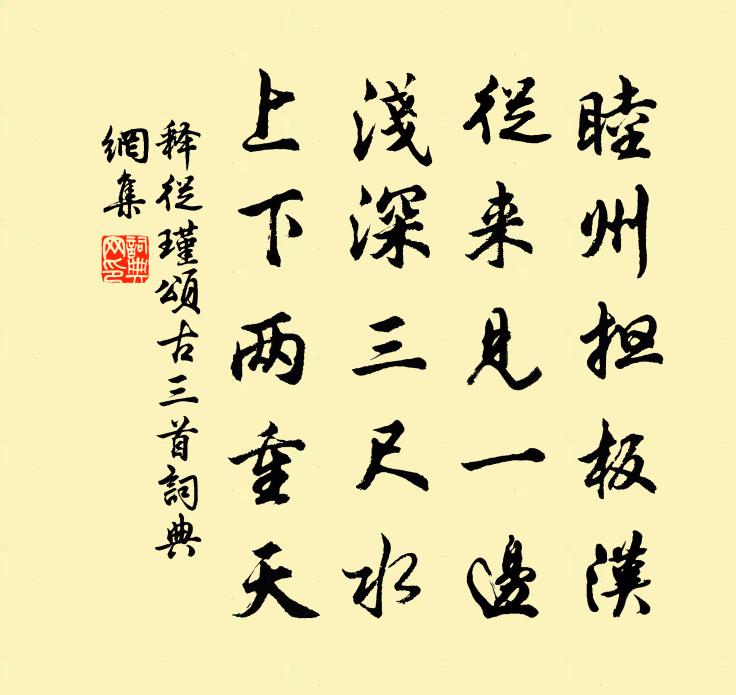 睦州担板漢
從来見一邊
淺深三尺水
上下两重天
释從瑾頌古三首詞典
網集
詞典
网印